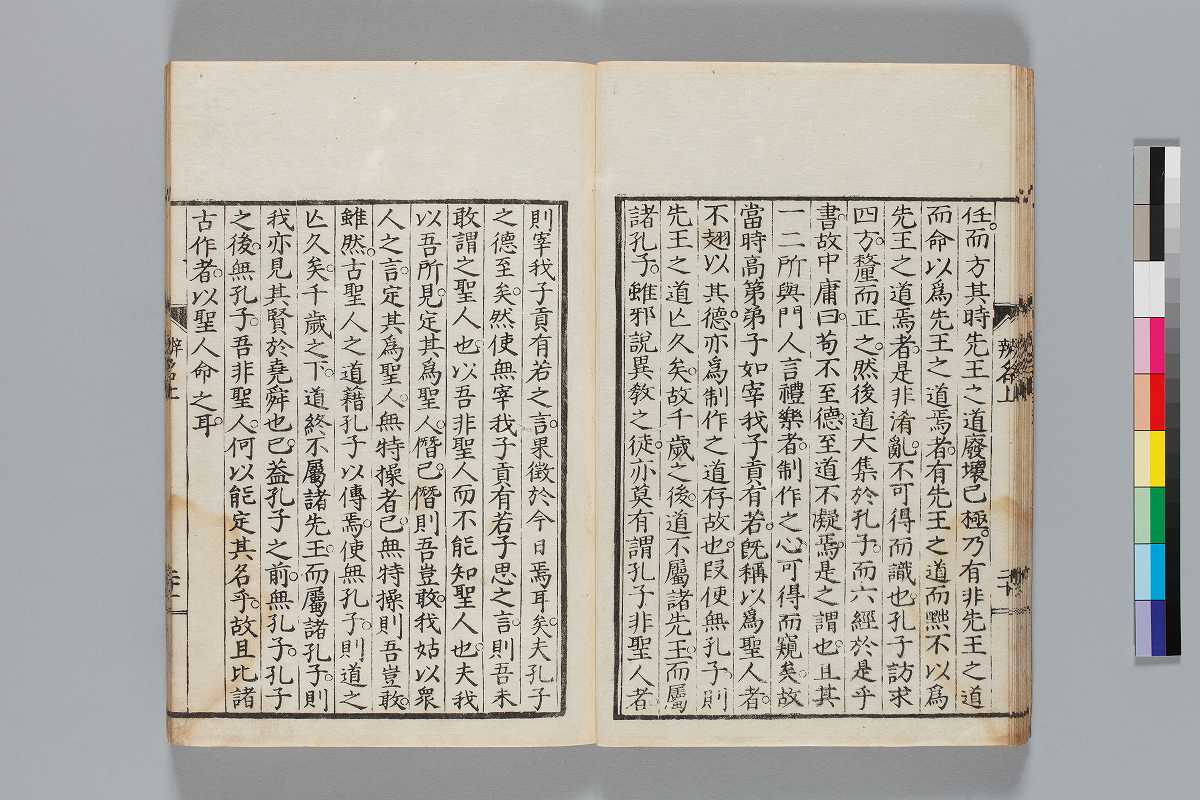 任。而方其時先王之道廢壞已極。乃有非先王之道
而命以爲先王之道焉者。有先王之道而黜不以爲
先王之道焉者。是非淆亂。不可得而識也。孔子訪求
四方。釐而正之。然後道大集於孔子。而六經於是乎
書。故中庸曰。苟不至德。至道不凝焉。是之謂也。且其
一二所與門人言禮樂者。制作之心。可得而窺矣。故
當時高第弟子如宰我子貢有若。既稱以爲聖人者。
不翅以其德。亦爲制作之道存故也。叚使無孔子。則
先王之道亡久矣。故千歲之後。道不屬諸先王。而屬
諸孔子。雖邪說異教之徒。亦莫有謂孔子非聖人者。
則宰我子貢有若之言。果徵於今日焉耳矣。夫孔子
之德至矣。然使無宰我子貢有若子思之言。則吾未
敢謂之聖人也。以吾非聖人而不能知聖人也。夫我
以吾所見。定其爲聖人。僭已。僭則吾豈敢。我姑以衆
人之言。定其爲聖人。無特操者已。無特操則吾豈敢。
雖然。古聖人之道藉孔子以傳焉。使無孔子。則道之
亡久矣。千歲之下。道終不屬諸先王。而屬諸孔子。則
我亦見其賢於堯舜也已。蓋孔子之前。無孔子。孔子
之後。無孔子。吾非聖人。何以能定其名乎。故且比諸
古作者。以聖人命之耳。
辨名上